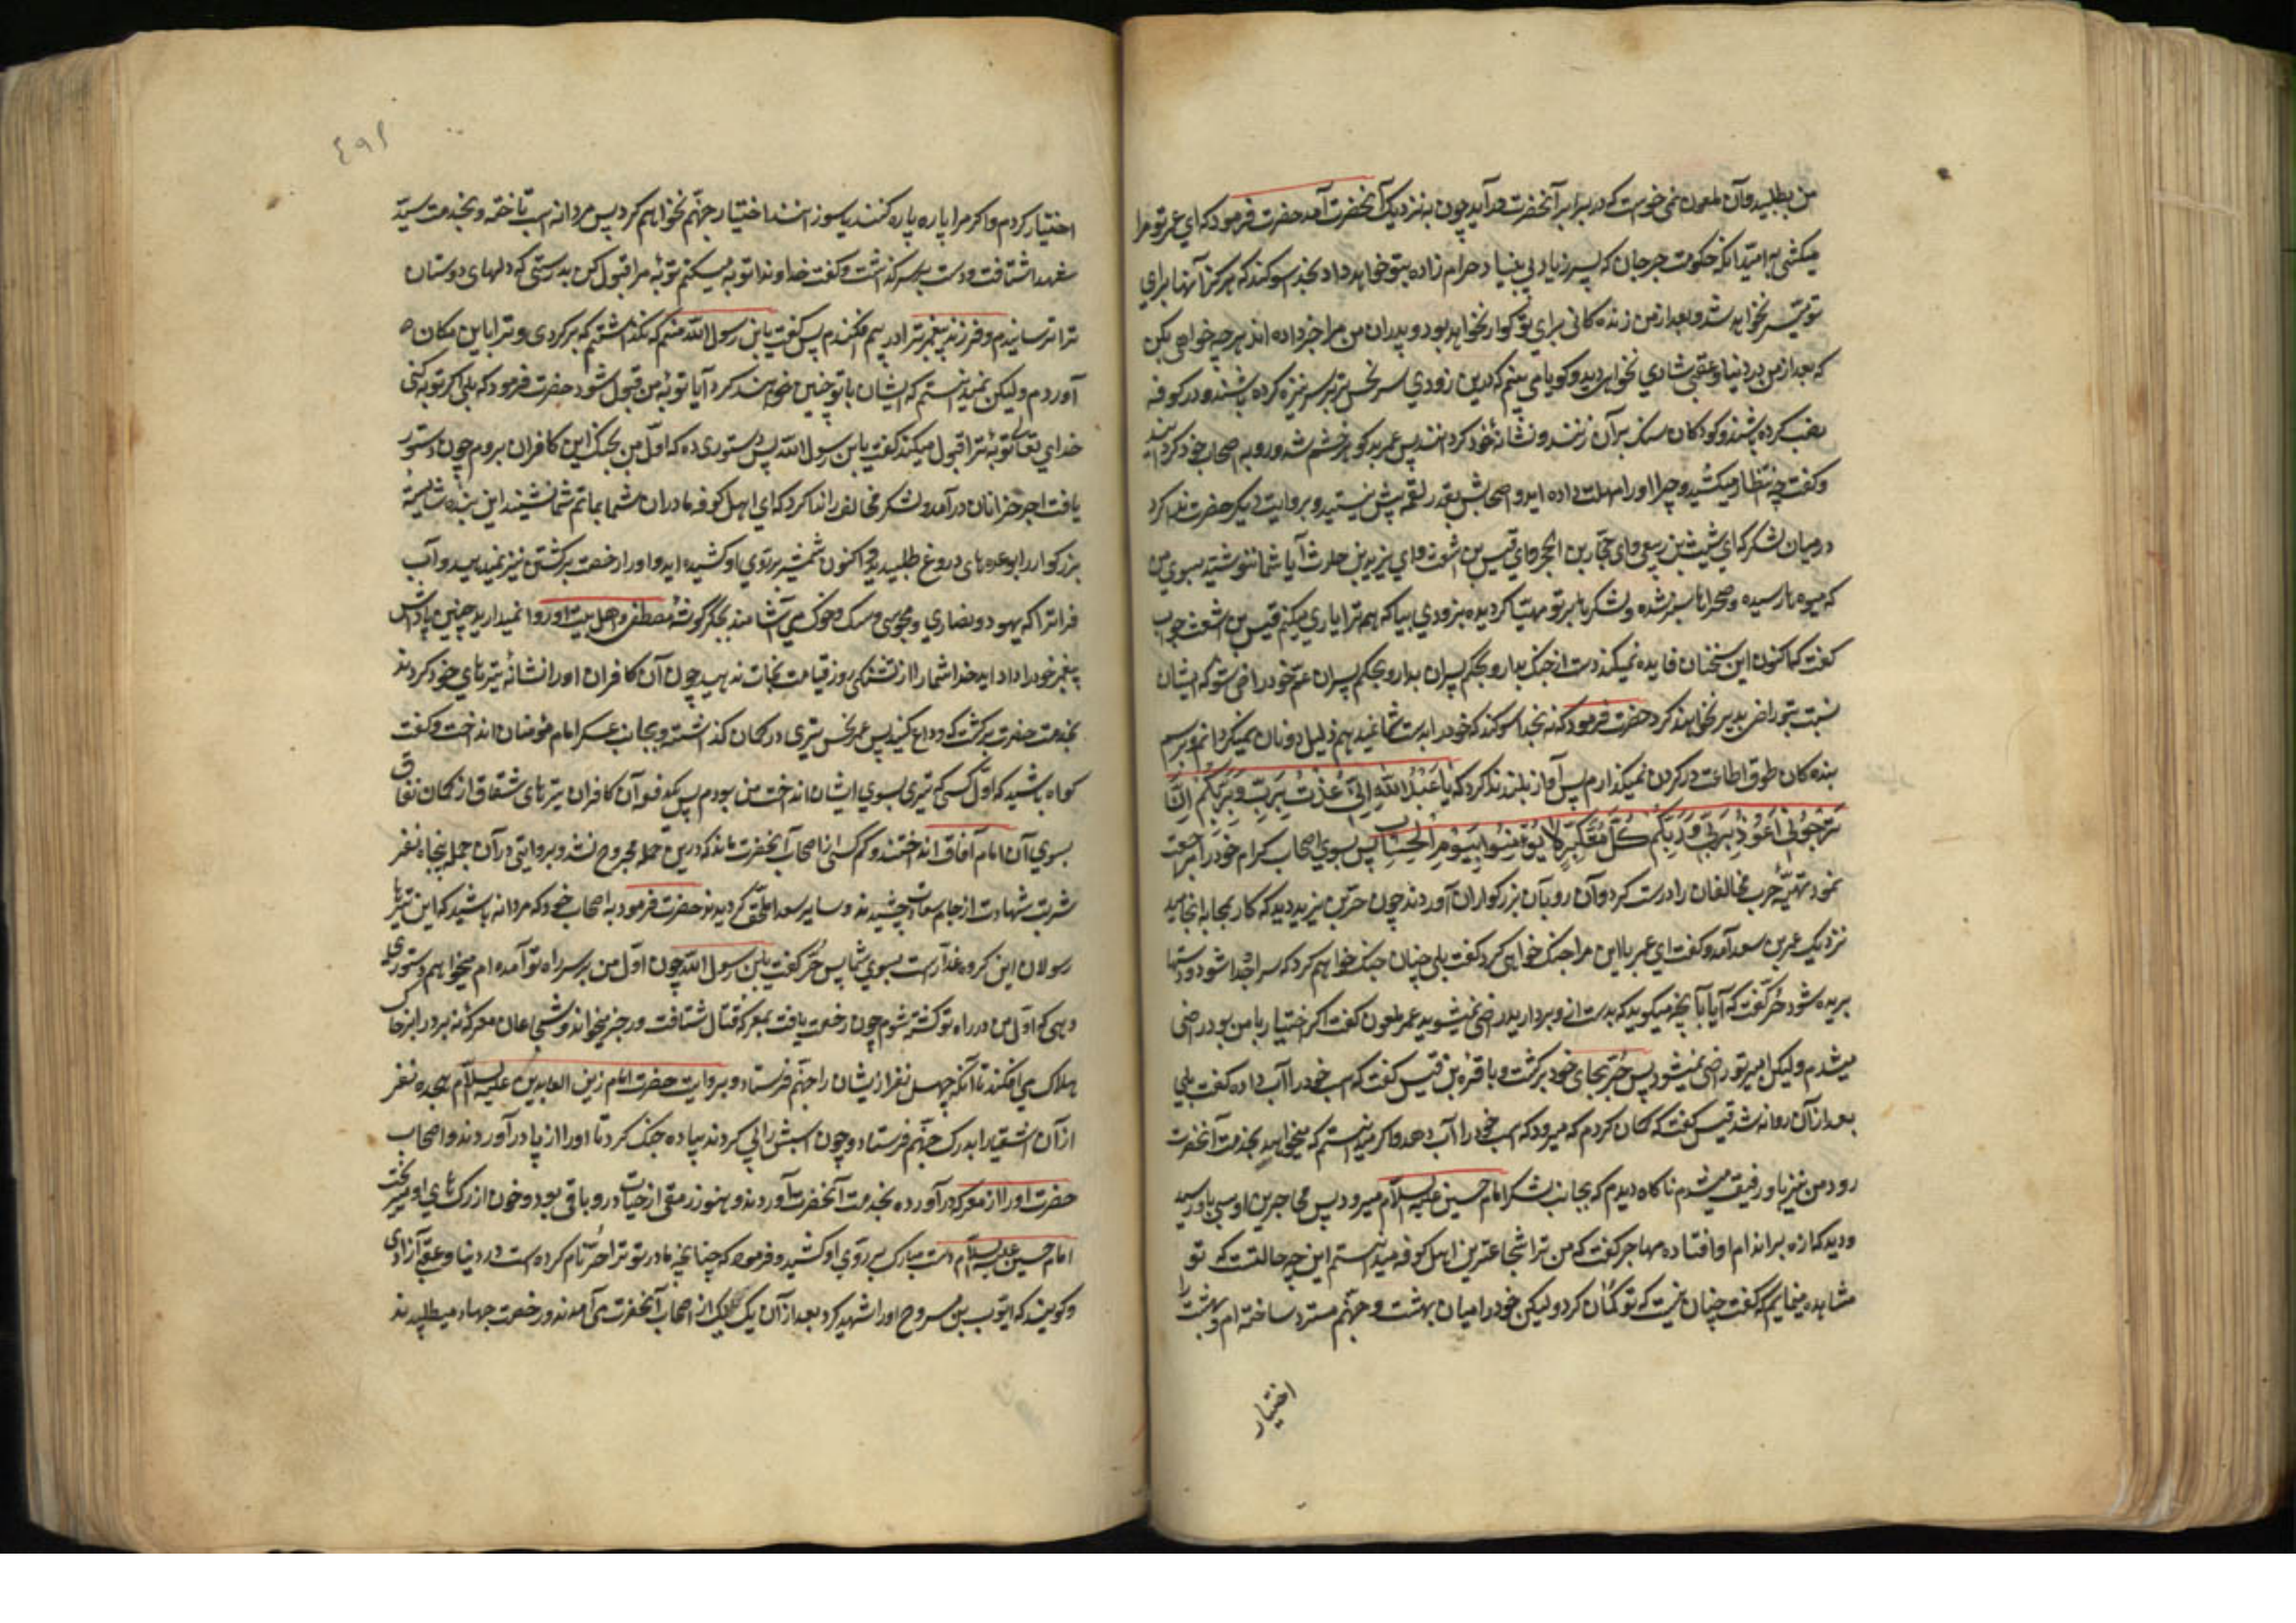 من بطلبید و آن ملعون نمی خواست که در برابر آنحضرت درآید چون به نزدیک آنحضرت آمد حضرت فرمود که ای عمر تو مرا
میکشی به امید آنکه حکومت جرجان که پسر زیاد بی بنیاد حرام زاده بتو خواهد داد بخدا سوکند که هرکز آنها برای
تو میسر نخواهد شد و بعد از من زنده کانی برای تو کوارا نخواهد بود و پدران من مرا خبر داده اند هر چه خواهی بکن
که بعد از من در دنیا و عقبی شادی نخواهی دید و کویا می بینم که درین زودی سر نحس ترا بر سر نیزه کرده باشند و در کوفه
نصب کرده باشند و کودکان سنک بر آن زنند و نشانه خود کردانند پس عمر بدکو بخشم شد و رو به اصحاب خود کردانید
و کفت چه انتظار میکشید و چرا او را مهلت داده اید و اصحابش بقدر لقمه بیش نیستید و بروایت دیکر حضرت ندا کرد
در میان لشکر که ای شیث بن ربعی و ای حجار بن ابجر و ای قیس بن اشعث و ای یزید بن حارث آیا شما ننوشتید بسوی من
که میوه ها رسیده و صحراها سبز شده و لشکرها بر تو مهیا کردیده بزودی بیا که هم ترا یاری میکنیم قیس بن اشعث جواب
کفت که اکنون این سخنان فایده نمیکند دست از جنک بدار و بحکم پسران بدار و بحکم پسران عم خود راضی شو که ایشان
نسبت بتو راضی ببدی نخواهند کرد حضرت فرمود که نه بخدا سوکند که خود را بدست شما نمیدهم ذلیل دونان نمیکردانم و برسم
بنده کان طوق اطاعت در کردن نمیکذارم پس آواز بلند ندا کرد که یا عباد الله انی عذت بربی و ربکم ان
ترجمون اعوذ بربی و ربکم کل متکبر لا یؤمن بیوم الحساب پس بسوی اصحاب کرام خود مراجعت
نمود تهیه حرب مخالفان را درست کرد و آن رو بآن بزرکواران آوردند چون حر بن یزید دید که کار بجا به انجامید
نزدیک عمر بن سعد آمد و کفت ای عمر با این مرد جنک خواهی کرد کفت بلی چنان جنک خواهم کرد که سرها جدا شود و دستها
بریده شود حر کفت که آیا بآنچه میکوید که دست از وی بردارید راضی نمیشوید عمر ملعون کفت اکر اختیار با من بود راضی
میشدم ولیکن امیر تو راضی نمیشود پس حر بجای خود برکشت و با قره بن قیس کفت که اسب خود را آب داده کفت بلی
بعد از آن روانه شد قیس کفت که کمان کردم که میرود که اسب خود را آب دهد و اکر میدانستم که میخواهد بخدمت آنحضرت
رود من نیز با او رفیق میشدم ناکاه دیدم که بجانب لشکر امام حسین علیه السلام میرود پس مهاجر بن اوس باو رسید
و دید که لرزه بر اندام او افتاده مهاجر کفت که من ترا شجاعترین اهل کوفه میدانستم این چه حالتست که تو
مشاهده مینمایم که کفت چنان نیست که تو کمان کرد ولیکن خود را میان بهشت و جهنم متردد ساخته ام و بهشت را
اختیار
۴۹۱
اختیار کردم و اکر مرا پاره پاره کنند یا بسوزانند اختیار جهنم نخواهم کرد پس مردانه اسب تاخته و بخدمت سید
شهدا شتافت و دست بر سر کذاشت و کفت خداوندا توبه میکنم توبه مرا قبول کن بدرستی که دلهای دوستان
ترا ترسانیدم و فرزند پیغمبر ترا در بیم افکندم پس کفت یا بن رسول الله منم که نکذاشتم که برکردی و ترا باین مکان
آوردم ولیکن نمیدانستم که ایشان با تو چنین خواهند کرد آیا توبه من قبول شود حضرت فرمود که بلی اکر توبه کنی
خدای تعالی توبه ترا قبول میکند کفت یا بن رسول الله پس دستوری ده که اول من بجنک این کافران بروم چون دستور
یافت اجر خزانان درآمد و لشکر مخالف را ندا کرد که ای اهل کوفه مادران شما بماتم شما نشینند این بنده شایسته
بزرکوار را بوعده های دروغ طلبیدید و اکنون شمشیر بر روی او کشیده اید و او را رخصت برکشتن نیز نمیدهید و آب
فرات را که یهود و نصاری و مجوسی و سک و خوک می آشامند بجکر کوشه مصطفی و اهل بیت او روا نمیدارید چنین پاداش
پیغمبر خود را داده اید خدا شما را از تشنکی روز قیامت نجات ندهد چون آن کافران او را نشانه تیرهای خود کردند
بخدمت حضرت برکشت که وداع کند پس عمر نحس تیری در کمان کذاشته و بجانب عسکر امام مؤمنان انداخت و کفت
کواه باشید که اول کسی که تیری بسوی ایشان انداخت من بودم پس یکدفعه آن کافران تیرهای شقاق از کمان نفاق
بسوی آن امام آفاق انداختند و کم کسی از اصحاب آنحضرت ماند که درین حمله مجروح نشد و بروایتی در آن حمله پنجاه نفر
شربت شهادت از جام سعادت چشیدند و سایر سعدا ملحق کردیدند حضرت فرمود به اصحاب خود که مردانه باشید که این تیرها
رسولان این کروه غدارست بسوی شما پس حر کفت یا بن رسول الله چون اول من بر سر راه تو آمده ام میخواهم دستوری
دهی که اول من در راه تو کشته شوم چون رخصت یافت بمعرکه قتال شتافت و رجز میخواند و شجاعان معرکه نبرد را بر خاک
هلاک می افکند تا آنکه چهل نفر از ایشان را بجهنم فرستاد و بروایت حضرت امام زین العابدین علیه السلام هجده نفر
از آن اشقیا را بدرک جهنم فرستاد و چون اسبش را پی کردند پیاده جنک کرد تا او را از پا در آوردند و اصحاب
حضرت او را از معرکه در آورده بخدمت آنحضرت آوردند و هنوز رمقی از حیات درو باقی بود و خون از رک های او میریخت
امام حسین علیه السلام دست مبارک بر روی او کشید و فرمود که چنانچه مادر تو ترا حر نام کرده است در دنیا و عقبی آزادی
و کویند که ایوب بن مسروح او را شهید کرد بعد از آن یک یک از اصحاب آنحضرت می آمدند و رخصت جهاد میطلبیدند